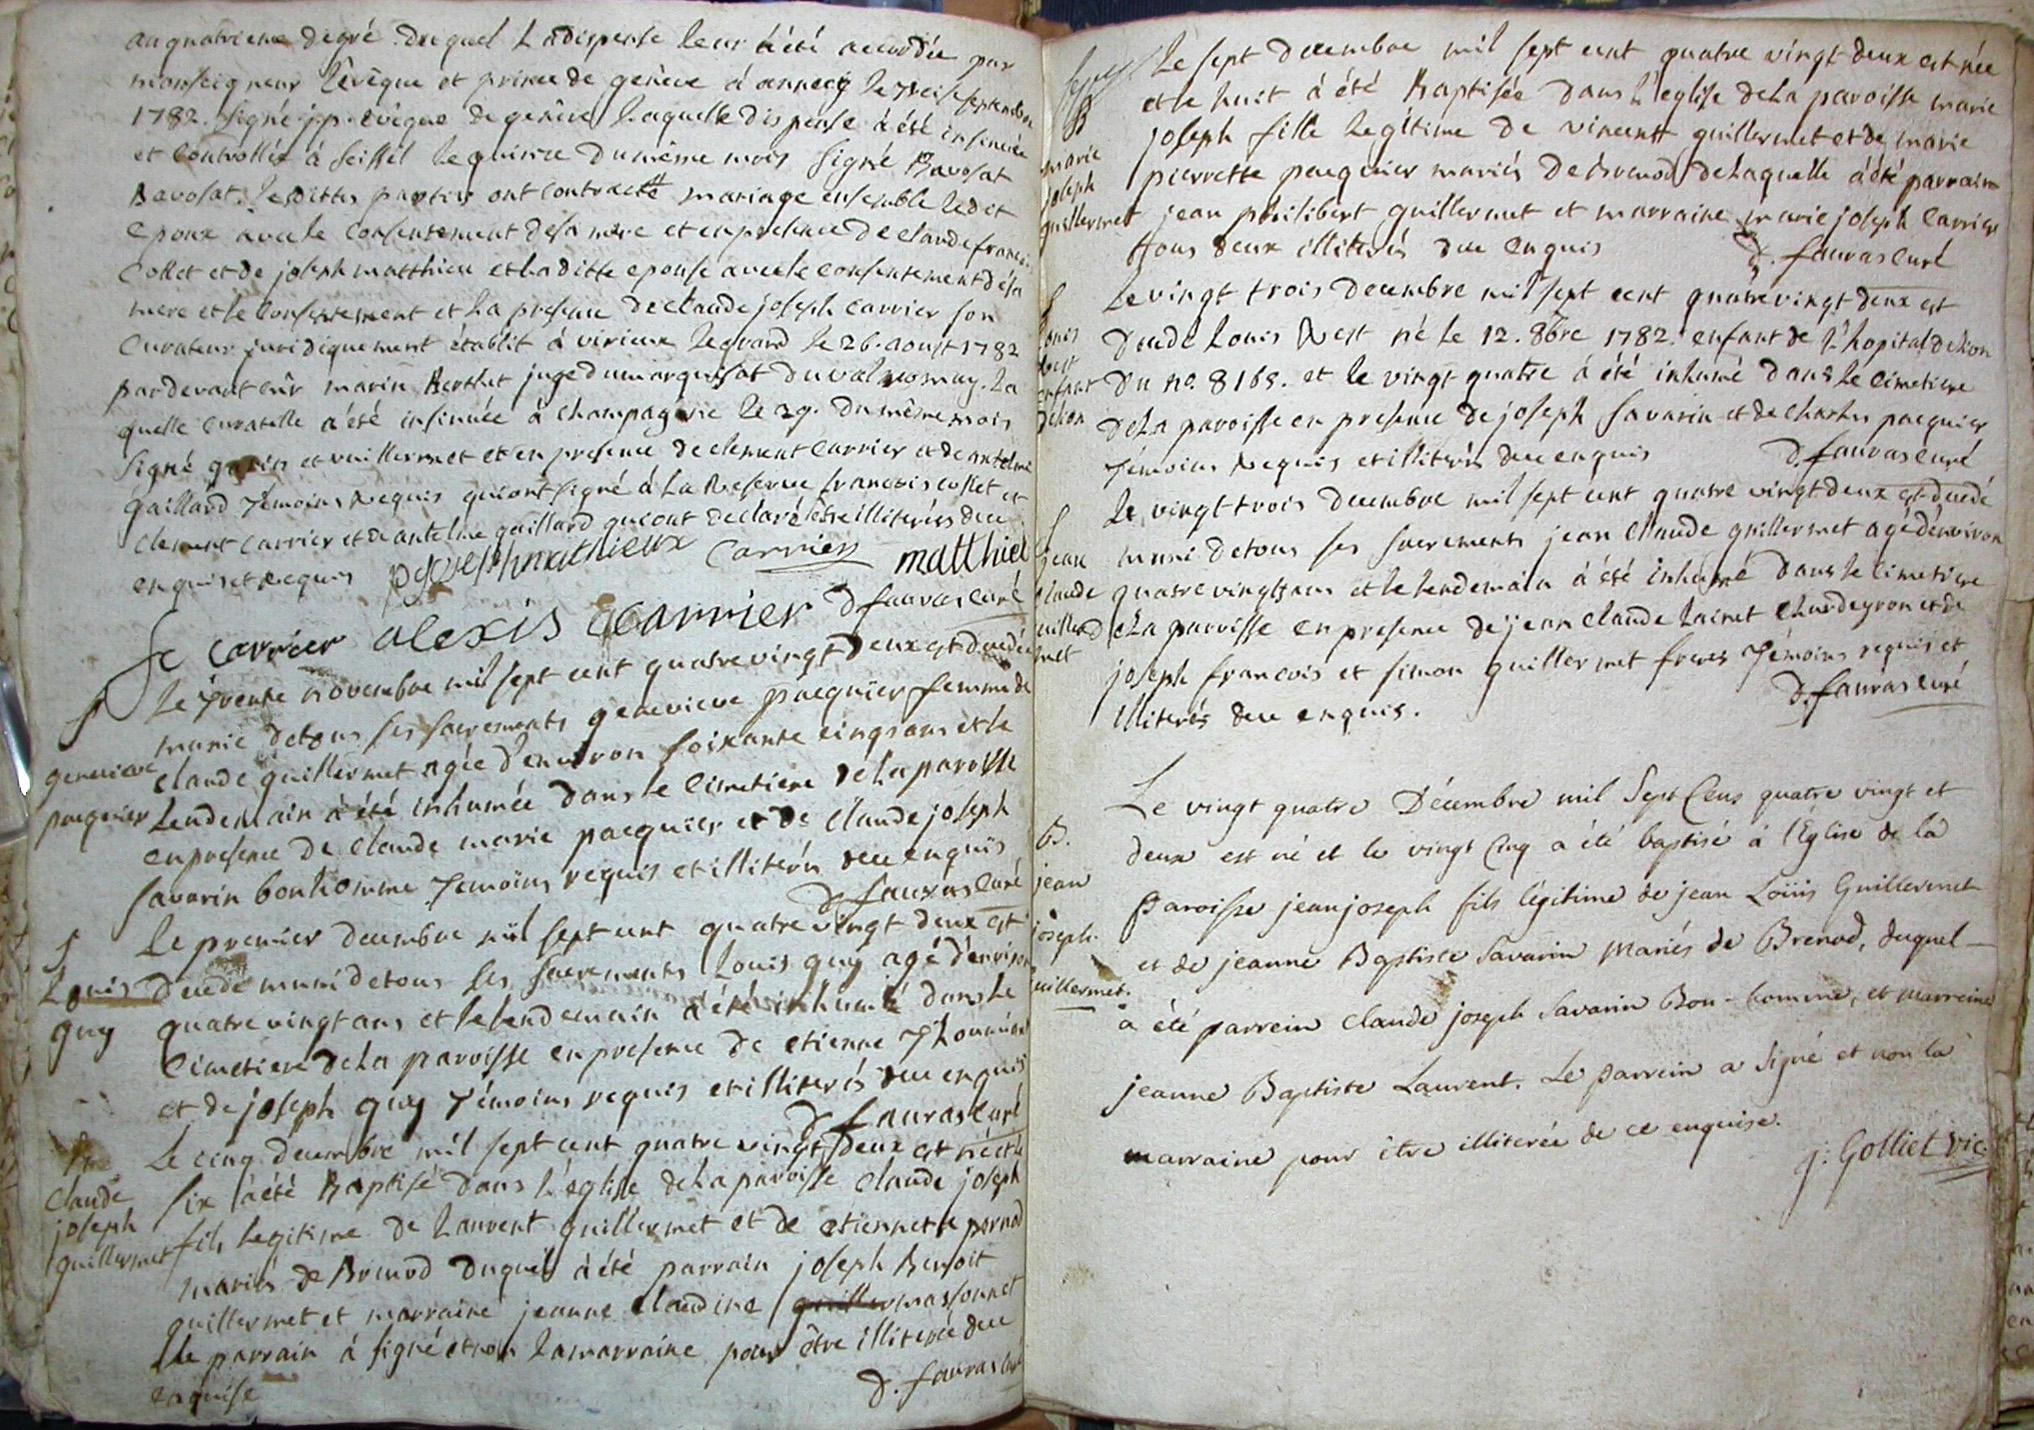 au quatrieme degré duquel La dispense leur à été accordée par
monseigneur l'évêque et prince de genève à annecy le treise septembre
1782. signé j.p. évêque de genève laquelle dispense à été insinuée
et controllée à seissel le quinze du même mois signé Ravosat
Ravosat. lesdittes parties ont contracté mariage ensemble ledit
epoux avec le consentement de sa mere et en presence de claude francois
collet et de joseph matthieu et la ditte epouse avec le consentement de sa
mere et le consentement et la presence de claude joseph carrier son
curateur juridiquement établit à virieux legrand le 26. aoust 1782
pardevant marin Berthet juge du marquisat du valromey. la
quelle curatelle a été insinuée à champagne le 29. du même mois
signé et vuillermet et en presence de clement carrier et de antelme
gaillard témoins requis qui ont signé à la reserve francois collet et
clement carrier et de antelme gaillard qui ont declaré être illiterés de ce
enquis et requis joseph mathieux carrier matthieu
fc carrier alexis carrier D. fauras curé
S
genevieve
pacquier
Le trente novembre mil sept cent quatre vingt deux est decedée
munie de tous ses sacrements genevieve pacquier femme de
claude guillermet agée d'environ soixante cinq ans et le
lendemain à été inhumée dans le cimetiere de la paroisse
en presence de claude marie pacquier et de claude joseph
savarin bonhomme témoins requis et illiterés de ce enquis
D. fauras curé
S
Louis
guy
Le premier decembre mil sept cent quatre vingt deux est
decedé muni de tous ses sacrements Louis guy agé d'environ
quatre vingt ans et le lendemain à été inhumé dans le
cimetiere de la paroisse en presence de etienne
et de joseph guy témoins requis et illiterés de ce enquis
D. fauras curé
claude
joseph
guillermet
Le cinq decembre mil sept cent quatre vingt deux est né et le
six à été Baptisé dans l'église de la paroisse claude joseph
fils legitime de Laurent guillermet et de etiennette pernod
mariés de Brenod duquel à été parrain joseph Benoit
guillermet et marraine jeanne claudine massonnet
le parrain à signé et non la marraine pour être illiterée de ce
enquise D. fauras curé
B
marie
joseph
guillermet
Le sept decembre mil sept cent quatre vingt deux est née
et le huit à été Baptisée dans l'église de la paroisse marie
joseph fille legitime de vincent guillermet et de marie
pierrette pacquier mariés de Brenod de laquelle à été parrain
jean philibert guillermet et marraine marie joseph carrier
tous deux illiterés de ce enquis D. fauras curé
S
Louis
enfant
de lion
Le vingt trois decembre mil sept cent quatre vingt deux est
decedé Louis né le 12. 8bre 1782. enfant de l'hopital de lion
du no. 8165. et le vingt quatre à été inhumé dans le cimetiere
de la paroisse en presence de joseph savarin et de charles pacquier
témoins requis et illiterés de ce enquis D. fauras curé
S
jean
claude
guiller
met
Le vingt trois decembre mil sept cent quatre vingt deux est decedé
muni de tous ses sacrements jean claude guillermet agé d'environ
quatre vingt ans et le lendemain à été inhumé dans le cimetiere
de la paroisse en presence de jean claude et de
joseph francois et simon guillermet freres témoins requis et
illiterés de ce enquis. D. fauras curé
B.
jean
joseph
guillermet.
Le vingt quatre Décembre mil Sept Cens quatre vingt et
deux est né et le vingt Cinq a été baptisé à l'Eglise de la
paroisse jean joseph fils légitime de jean Loüis Guillermet
et de jeanne Baptiste Savarin Mariés de Brenod, duquel
a été parrein Claude joseph Savarin Bon-homme, et marreine
jeanne Baptiste Laurent. Le parrein a Signé et non la
marraine pour être illiterée de ce enquise.
j. Golliet vic.